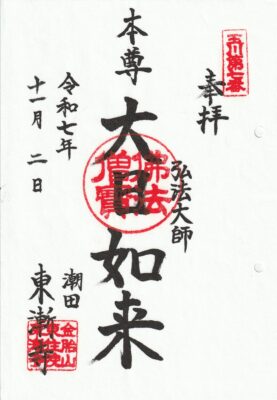 玉川第七番
奉拝
弘法大師
本尊
大日如来
佛法僧寶
令和七年
十一月二日
潮田
東漸寺
金胎山